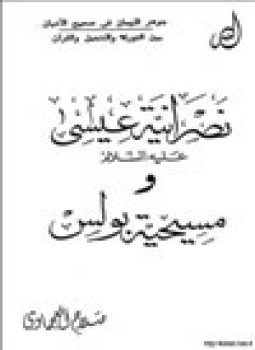 جوهر الإيمان في صحيح الأديان
بين التوراة والإنجيل والقرآن
نصرانية عيسى
عليه السلام
و
مسيحية بولس